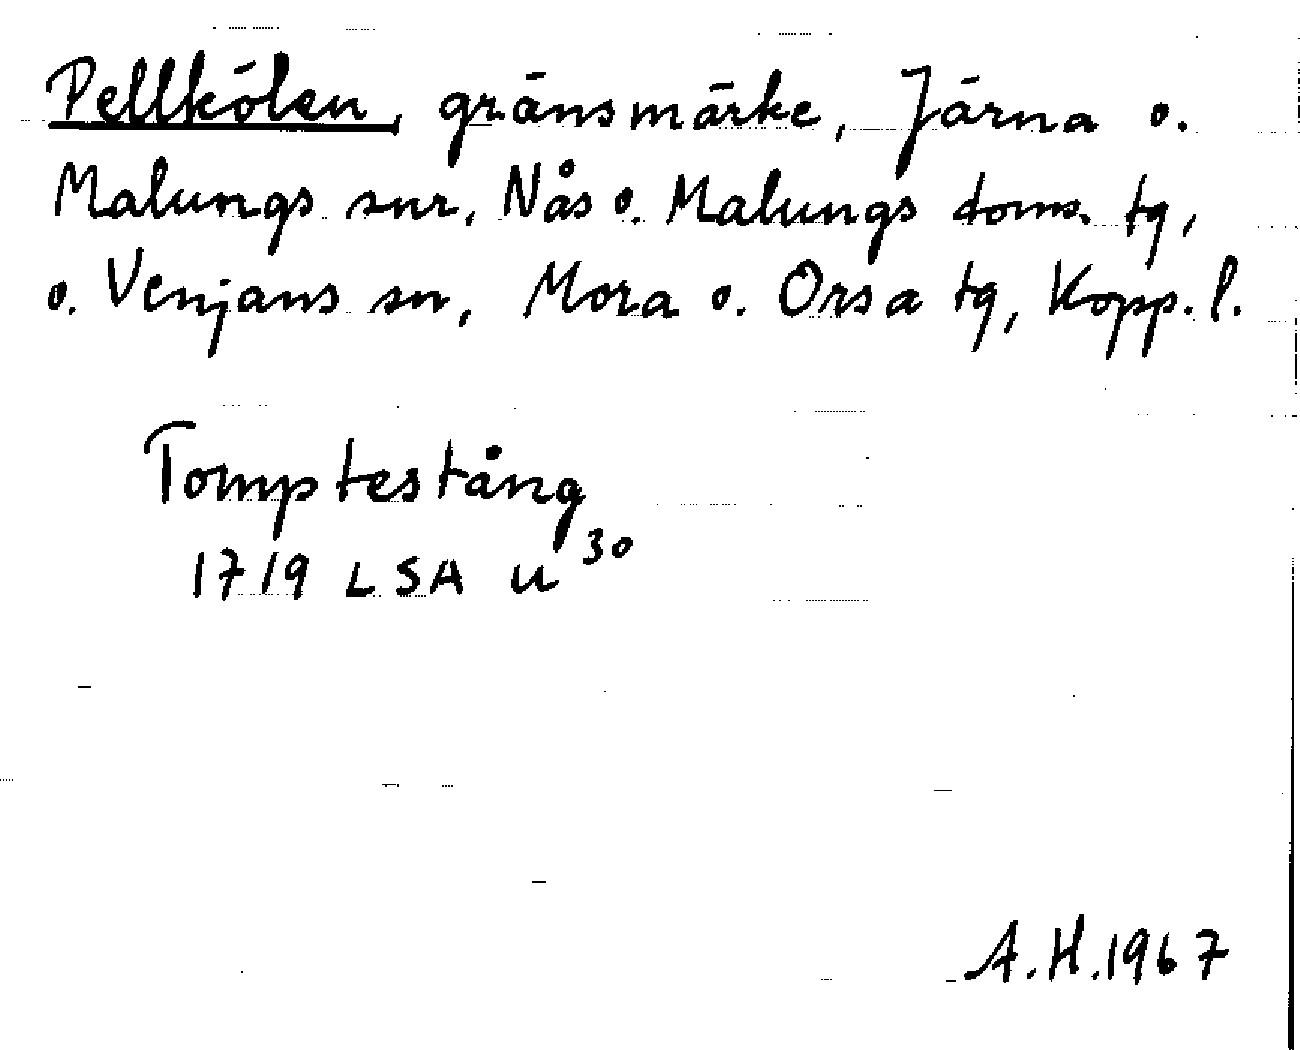 Pellkölen, gränsmärke, Järna o.
Malungs snr, Nås o. Malungs doms. tg,
o. Venjans sn, Mora o. Orsa tg, Kopp. l.
Tomptestång
1719 LSA U 30
A.H.1967